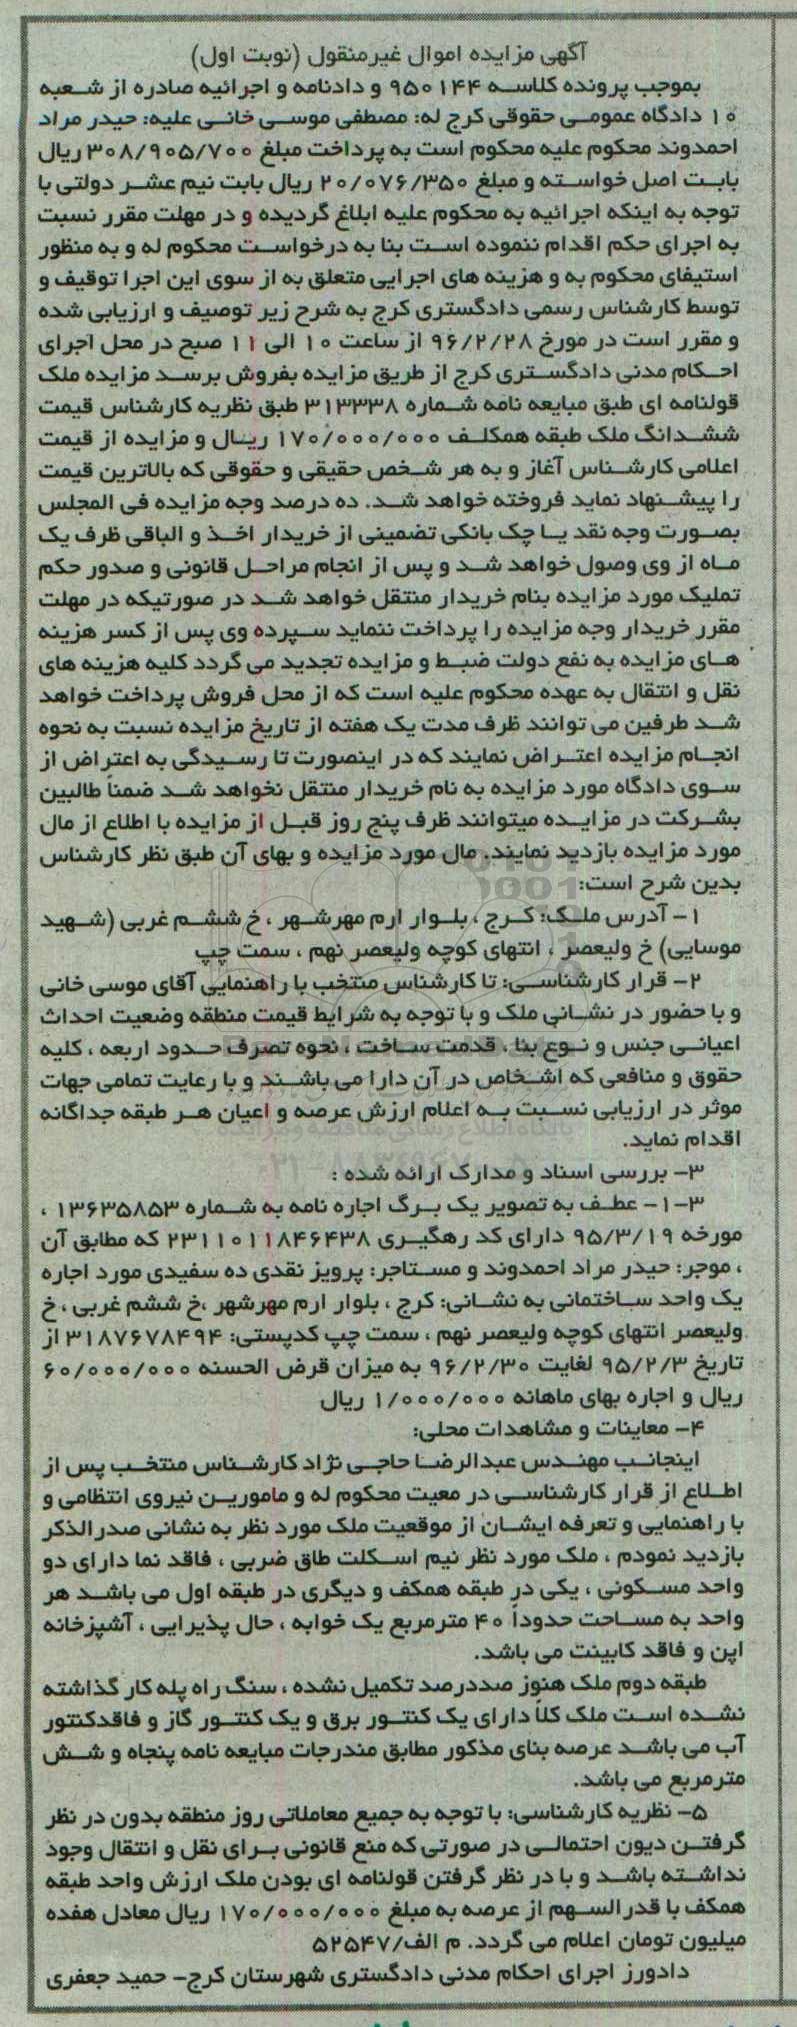 آگهی مزایده اموال غیرمنقول (نوبت اول)
بموجب پرونده کلاسه ۹۵۰۱۴۴ و دادنامه و اجرائیه صادره از شعبه
۱۰ دادگاه عمومی حقوقی کرج له: مصطفی موسی خانی علیه: حیدر مراد
احمدوند محکوم علیه محکوم است به پرداخت مبلغ ۳۰۸/۹۰۵/۷۰۰ ریال
بابت اصل خواسته و مبلغ ۲۰/۰۷۶/۳۵۰ ریال بابت نیم عشر دولتی با
توجه به اینکه اجرائیه به محکوم علیه ابلاغ گردیده و در مهلت مقرر نسبت
به اجرای حکم اقدام ننموده است بنا به درخواست محکوم له و به منظور
استیفای محکوم به و هزینه های اجرایی متعلق به از سوی این اجرا توقیف و
توسط کارشناس رسمی دادگستری کرج به شرح زیر توصیف و ارزیابی شده
و مقرر است در مورخ ۹۶/۲/۲۸ از ساعت ۱۰ الی ۱۱ صبح در محل اجرای
احکام مدنی دادگستری کرج از طریق مزایده بفروش برسد مزایده ملک
قولنامه ای طبق مبایعه نامه شماره ۳۱۳۳۳۸ طبق نظریه کارشناس قیمت
ششدانگ ملک طبقه همکلف ۱۷۰/۰۰۰/۰۰۰ ریال و مزایده از قیمت
اعلامی کارشناس آغاز و به هر شخص حقیقی و حقوقی که بالاترین قیمت
را پیشنهاد نماید فروخته خواهد شد. ده درصد وجه مزایده فی المجلس
بصورت وجه نقد یا چک بانکی تضمینی از خریدار اخذ و الباقی ظرف یک
ماه از وی وصول خواهد شد و پس از انجام مراحل قانونی و صدور حکم
تملیک مورد مزایده بنام خریدار منتقل خواهد شد در صورتیکه در مهلت
مقرر خریدار وجه مزایده را پرداخت ننماید سپرده وی پس از کسر هزینه
های مزایده به نفع دولت ضبط و مزایده تجدید می گردد کلیه هزینه های
نقل و انتقال به عهده محکوم علیه است که از محل فروش پرداخت خواهد
شد طرفین می توانند ظرف مدت یک هفته از تاریخ مزایده نسبت به نحوه
انجام مزایده اعتراض نمایند که در اینصورت تا رسیدگی به اعتراض از
سوی دادگاه مورد مزایده به نام خریدار منتقل نخواهد شد ضمناً طالبین
بشرکت در مزایده میتوانند ظرف پنج روز قبل از مزایده با اطلاع از مال
مورد مزایده بازدید نمایند. مال مورد مزایده و بهای آن طبق نظر کارشناس
بدین شرح است:
۱- آدرس ملک: کرج ، بلوار ارم مهرشهر ، خ ششم غربی (شهید
موسایی) خ ولیعصر ، انتهای کوچه ولیعصر نهم ، سمت چپ
۲- قرار کارشناسی: تا کارشناس منتخب با راهنمایی آقای موسی خانی
و با حضور در نشانی ملک و با توجه به شرایط قیمت منطقه وضعیت احداث
اعیانی جنس و نوع بنا ، قدمت ساخت ، نحوه تصرف حدود اربعه ، کلیه
حقوق و منافعی که اشخاص در آن دارا می باشند و با رعایت تمامی جهات
موثر در ارزیابی نسبت به اعلام ارزش عرصه و اعیان هر طبقه جداگانه
اقدام نماید.
۳- بررسی اسناد و مدارک ارائه شده :
۳-۱- عطف به تصویر یک برگ اجاره نامه به شماره ۱۳۶۳۵۸۵۳ ،
مورخه ۹۵/۳/۱۹ دارای کد رهگیری ۲۳۱۱۰۱۱۸۴۶۴۳۸ که مطابق آن
، موجر: حیدر مراد احمدوند و مستاجر: پرویز نقدی ده سفیدی مورد اجاره
یک واحد ساختمانی به نشانی: کرج ، بلوار ارم مهرشهر ،خ ششم غربی ، خ
ولیعصر انتهای کوچه ولیعصر نهم ، سمت چپ کدپستی: ۳۱۸۷۶۷۸۴۹۴ از
تاریخ ۹۵/۲/۳ لغایت ۹۶/۲/۳۰ به میزان قرض الحسنه ۶۰/۰۰۰/۰۰۰
ریال و اجاره بهای ماهانه ۱/۰۰۰/۰۰۰ ریال
۴- معاینات و مشاهدات محلی:
اینجانب مهندس عبدالرضا حاجی نژاد کارشناس منتخب پس از
اطلاع از قرار کارشناسی در معیت محکوم له و مامورین نیروی انتظامی و
با راهنمایی و تعرفه ایشان از موقعیت ملک مورد نظر به نشانی صدرالذکر
بازدید نمودم ، ملک مورد نظر نیم اسکلت طاق ضربی ، فاقد نما دارای دو
واحد مسکونی ، یکی در طبقه همکف و دیگری در طبقه اول می باشد هر
واحد به مساحت حدوداً ۴۰ مترمربع یک خوابه ، حال پذیرایی ، آشپزخانه
اپن و فاقد کابینت می باشد.
طبقه دوم ملک هنوز صددرصد تکمیل نشده ، سنگ راه پله کار گذاشته
نشده است ملک کلاً دارای یک کنتور برق و یک کنتور گاز و فاقدکنتور
آب می باشد عرصه بنای مذکور مطابق مندرجات مبایعه نامه پنجاه و شش
مترمربع می باشد.
۵- نظریه کارشناسی: با توجه به جمیع معاملاتی روز منطقه بدون در نظر
گرفتن دیون احتمالی در صورتی که منع قانونی برای نقل و انتقال وجود
نداشته باشد و با در نظر گرفتن قولنامه ای بودن ملک ارزش واحد طبقه
همکف با قدرالسهم از عرصه به مبلغ ۱۷۰/۰۰۰/۰۰۰ ریال معادل هفده
میلیون تومان اعلام می گردد. م الف/۵۲۵۴۷
دادورز اجرای احکام مدنی دادگستری شهرستان کرج- حمید جعفری